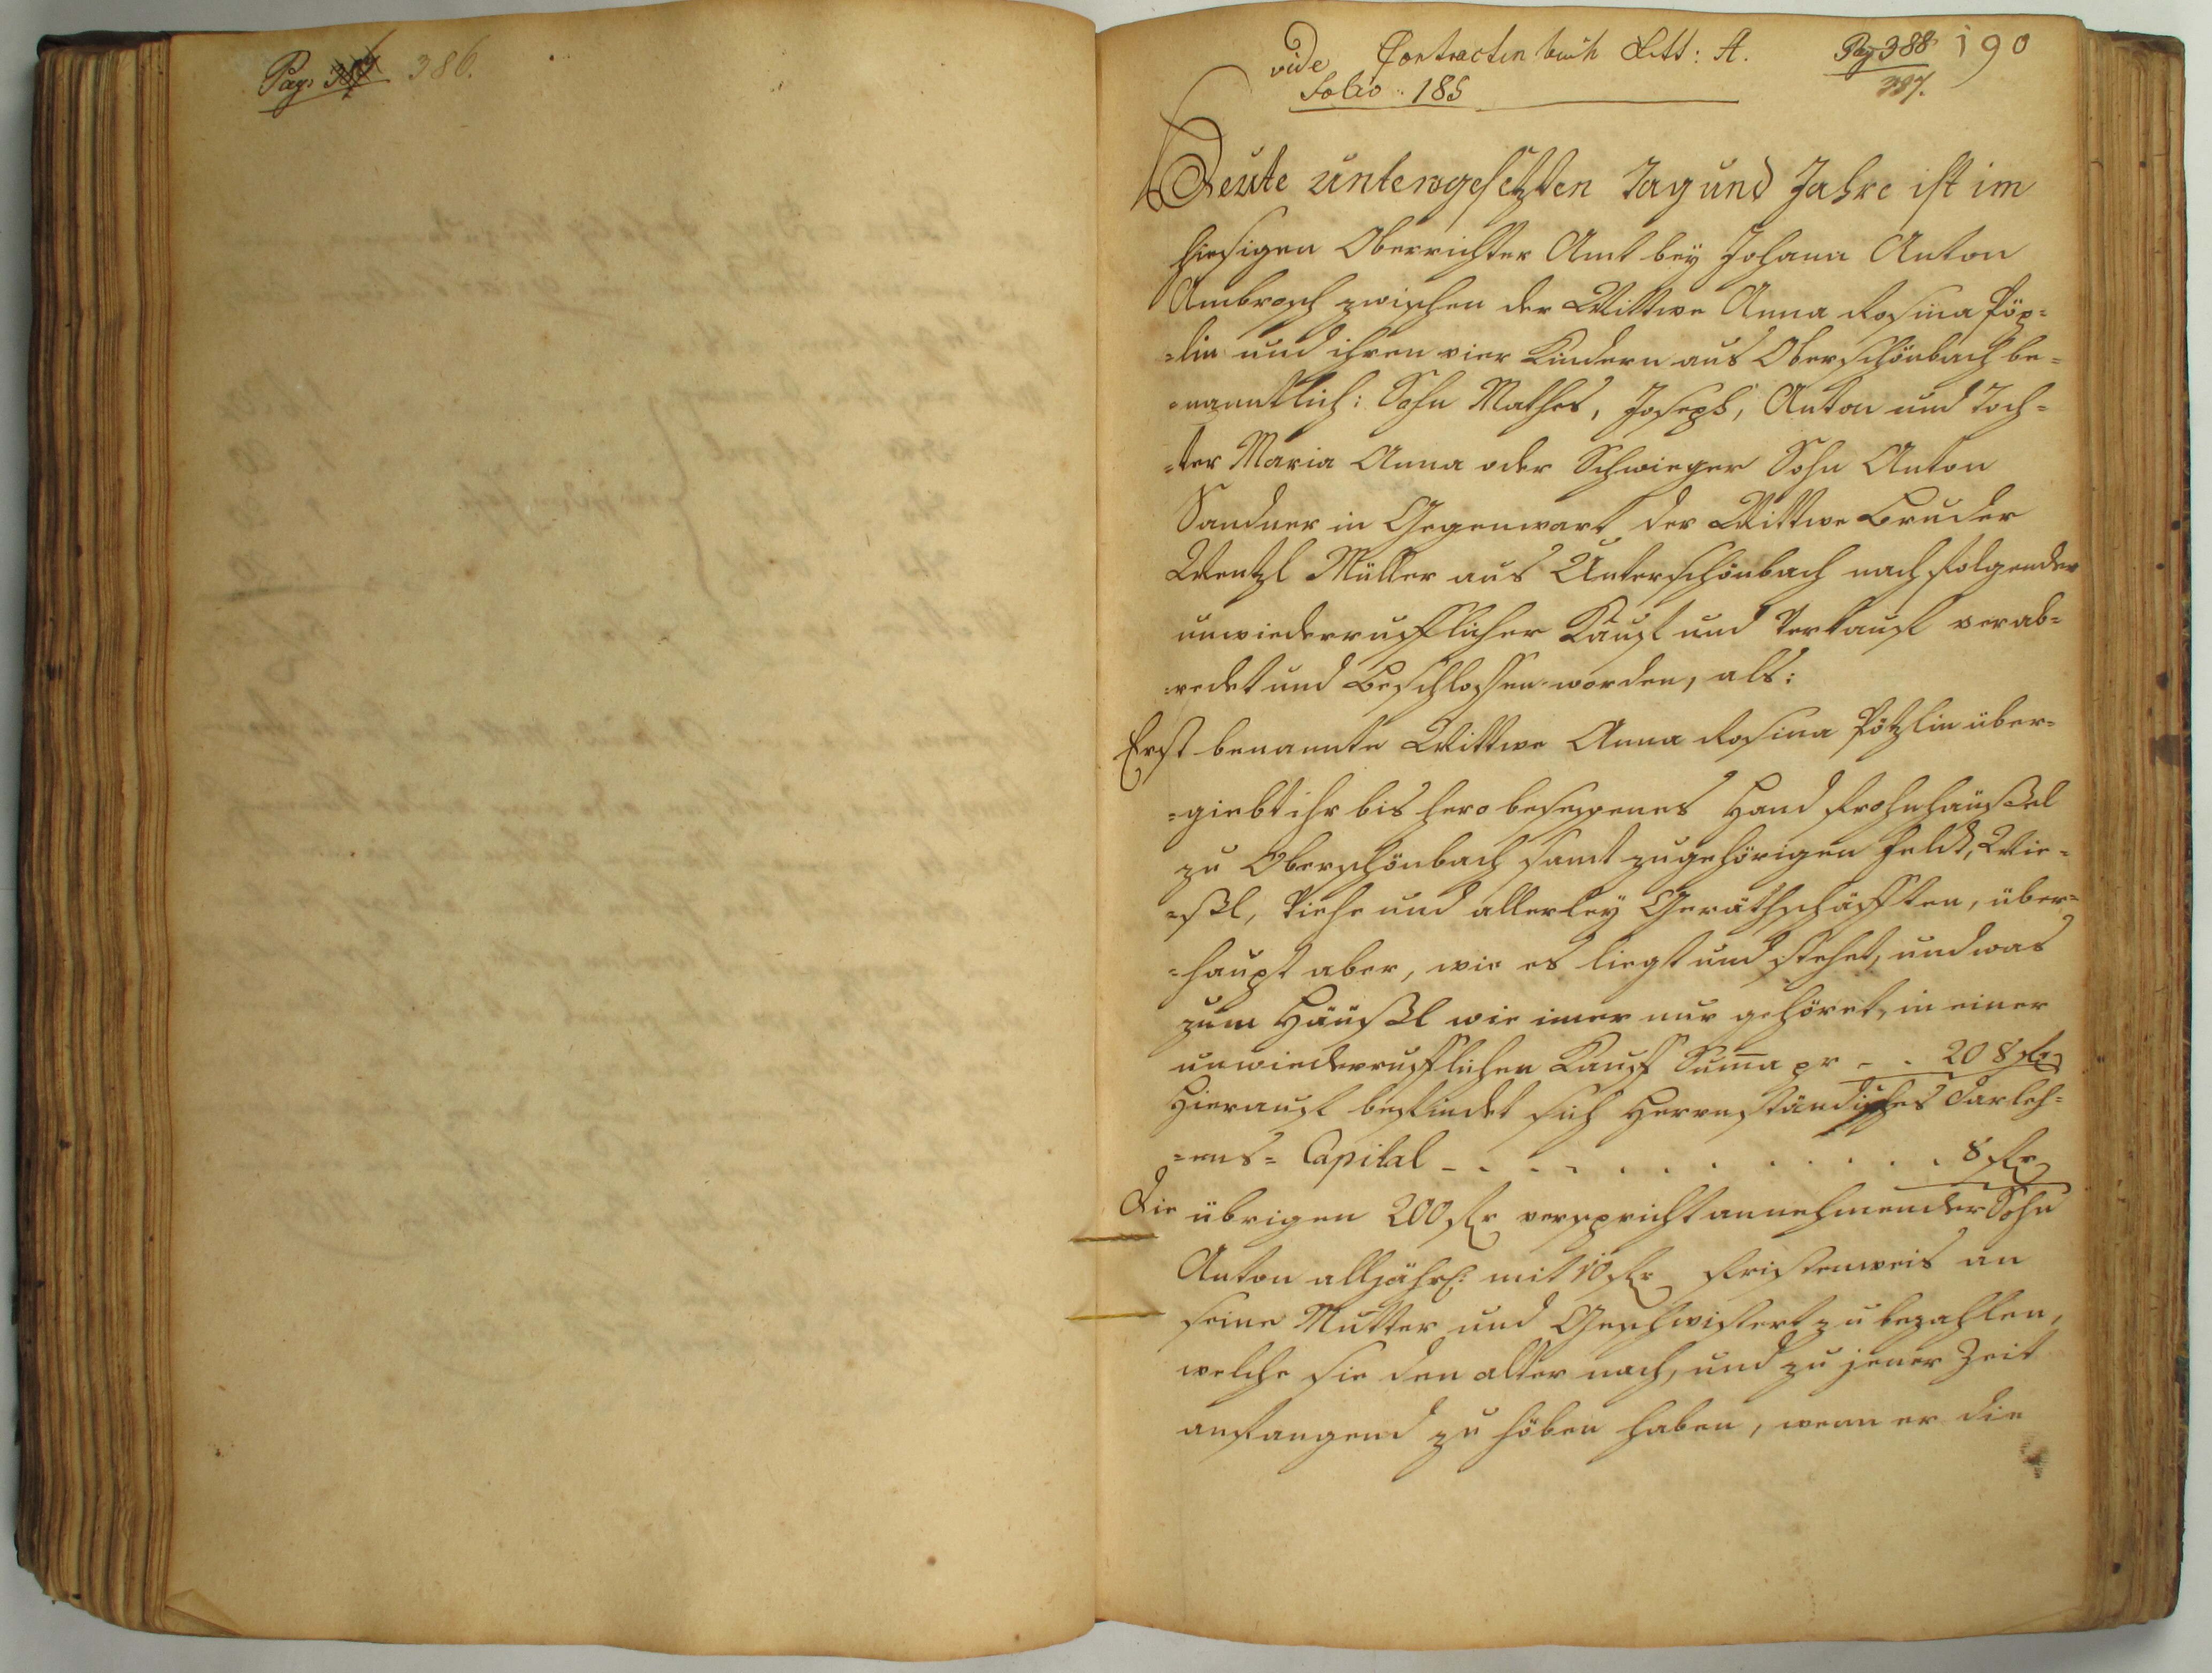 Pag: 386.
vide Contracten buch Litt: A. Pag 388 190
Folio 185 387.
Heute untengesetzten Tag und Jahre ist im
hiesigen Oberrichter Amt bey Johann Anton
Ambrosch zwischen der Wittwe Anna Rosina Pöz-
=lin und ihren vier Kindern aus Oberschönbach be-
=nanntlich: Sohn Mathes, Joseph, Anton und Toch-
=ter Maria Anna oder Schwieger Sohn Anton
Sandner in Gegenwart der Wittwe Bruder
Wentzl Müller aus Unterschönbach nachfolgender
unwiederrufflicher Kauf und Verkauf verab-
=redet und beschlossen worden, als:
Erst benannte Wittwe Anna Rosina Pötzlin über-
=giebt ihr bis hero besessenes Hand frohnhäußel
zu Oberschönbach samt zugehörigen Feld, Wie-
=sßl, Viehe und allerley Geräthschafften, über-
=haupt aber, wie es liegt und stehet, und was
zum Häußl wie imer nur gehöret, in einer
unwiederrufflichen Kauff Suma pr - . 208 fl
Hierauf befindet sich Herrnständisches Darleh-
=ens= Capital - . . . . . . . . . . . 8 fl
Die übrigen 200 fl verspricht annehmender Sohn
Anton alljährl: mit 10 fl fristenweis an
seine Mutter und Geschwistert zu bezahlen,
welche sie den alter nach, und zu jener Zeit
anfangend zu höben haben, wenn er die